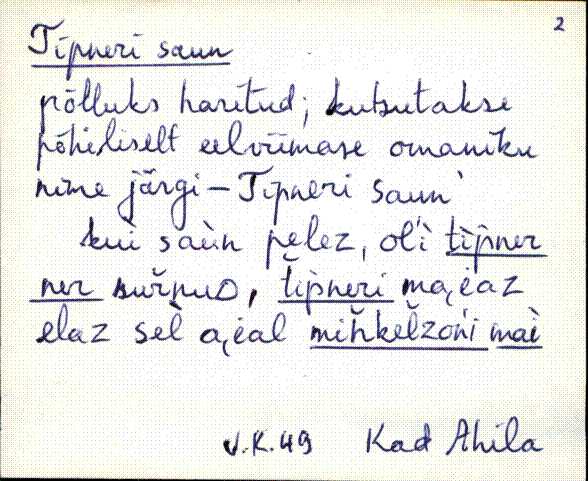 2
Tipneri saun
põlluks haritud; kutsutakse
põhiliselt eelviimase omaniku
nime järgi – Tipneri saun'
kuì saùn pelez, ol'ì tìpner
ner
tipneri
elaz sel
V.K. 49 Kad Ahila